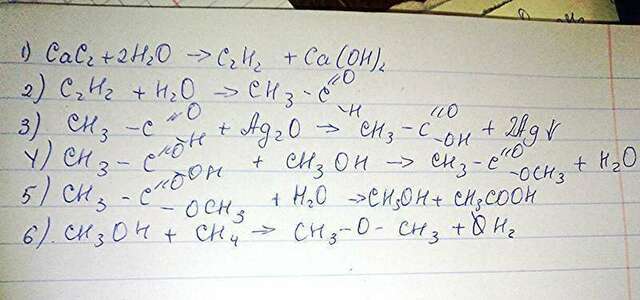 1) CaC2 + 2H2O → C2H2 + Ca(OH)2
2) C2H2 + H2O → CH3 - C =O -H
3) CH3 - C =O -H + Ag2O → CH3 - C =O -OH + 2Ag↓
4) CH3 - C =O -OH + CH3OH → CH3 - C =O -OCH3 + H2O
5) CH3 - C =O -OCH3 + H2O → CH3OH + CH3COOH
6) CH3OH + CH4 → CH3 - O - CH3 + H2